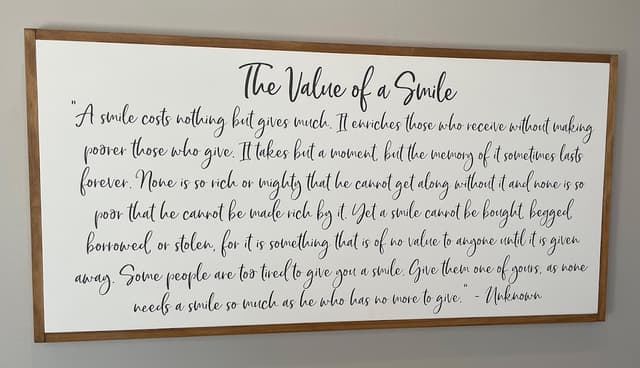 The Value of a Smile
"A smile costs nothing but gives much. It enriches those who receive without making
poorer those who give. It takes but a moment, but the memory of it sometimes lasts
forever. None is so rich or mighty that he cannot get along without it and none is so
poor that he cannot be made rich by it. Yet a smile cannot be bought, begged,
borrowed, or stolen, for it is something that is of no value to anyone until it is given
away. Some people are too tired to give you a smile. Give them one of yours, as none
needs a smile so much as he who has no more to give." - Unknown